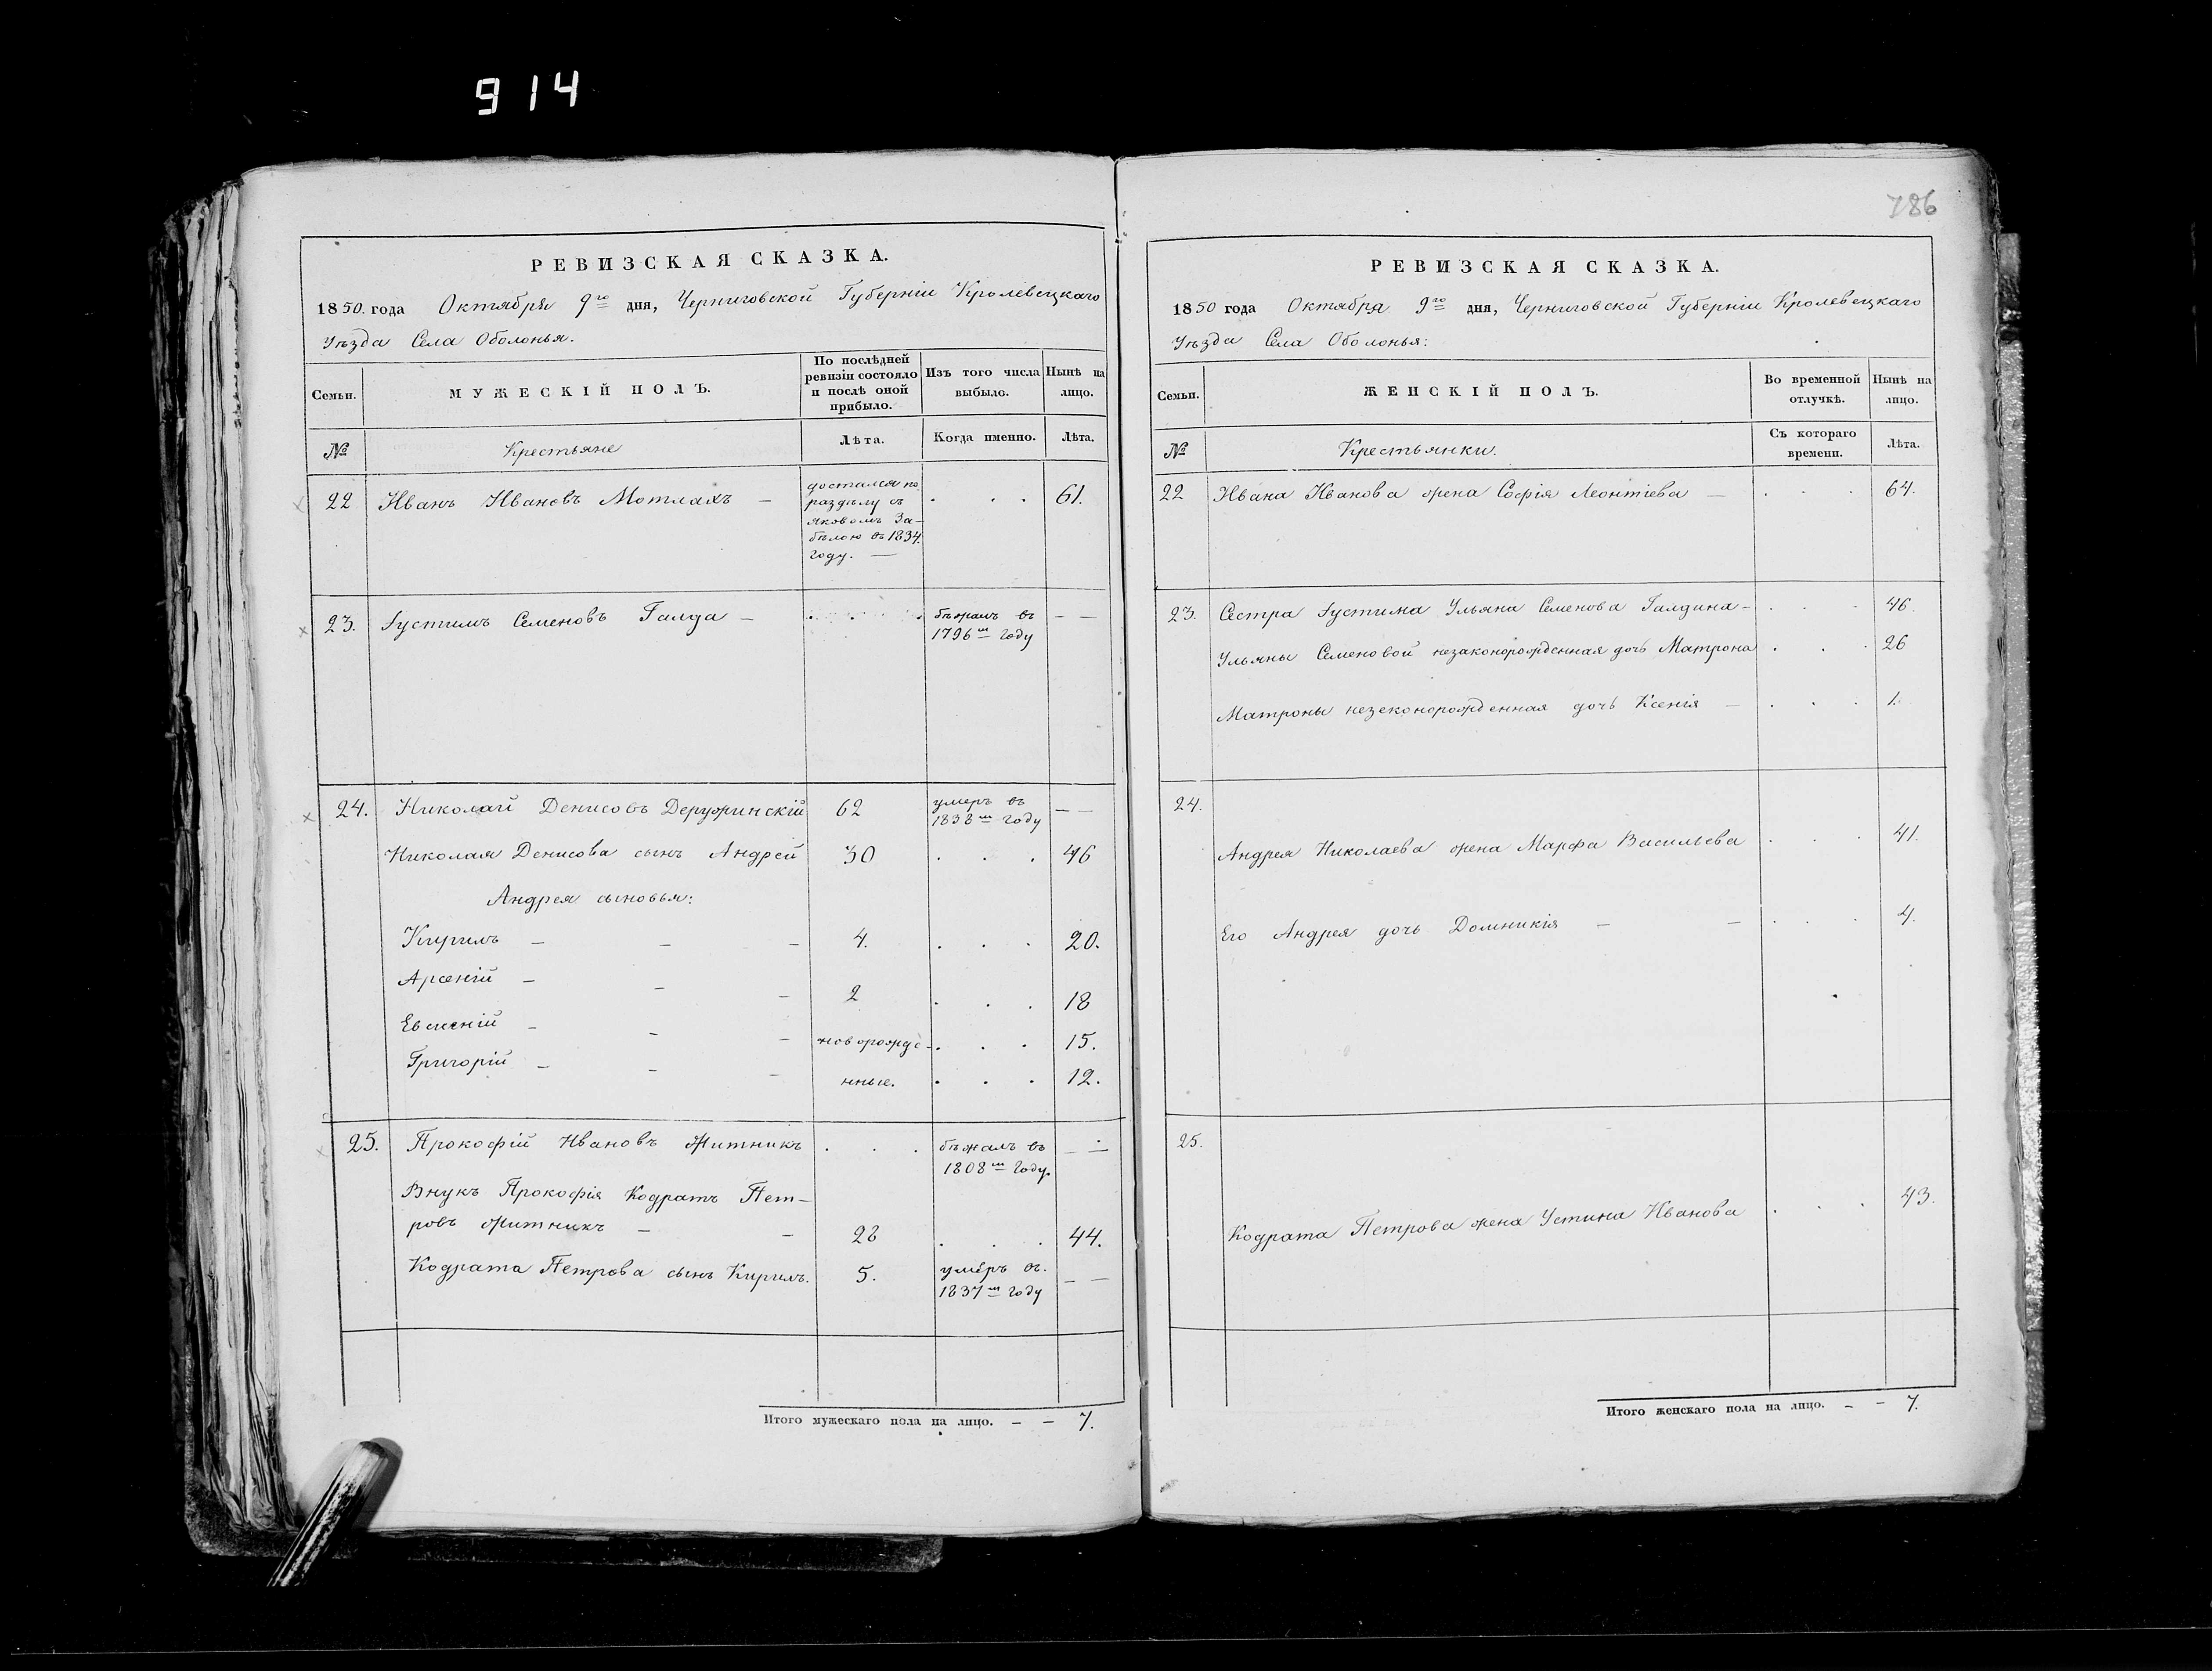 914
РЕВИЗСКАЯ СКАЗКА.
1850. года Октября 9го дня, Черниговской Губерніи Кролевецкаго
Уѣзда Села Оболонья.
Семьи. МУЖЕСКІЙ ПОЛЪ. По послѣдней ревизіи состояло и послѣ оной прибыло. Изъ того числа выбыло. Нынѣ на лицо.
№ Крестьяне Лѣта. Когда именно. Лѣта.
22 Иванъ Ивановъ Мотлахъ — достался по . . . 61.
раздѣлу съ
Яковомъ За-
бѣлою въ 1834.
году. —
23. Іустимъ Семеновъ Галда — . . . бѣжалъ въ — —
1796м году
24. Николай Денисовъ Деружинскій 62 умеръ въ — —
1838м году
Николая Денисова сынъ Андрей 30 . . . 46
Андрея сыновья:
Кирилъ — — — 4. . . . 20.
Арсеній — — — 2 . . . 18
Евгеній — — — новорожде- . . . 15.
Григорій — — — нные. . . . 12.
25. Прокофій Ивановъ Житникъ . . . бѣжалъ въ — —
1808м году.
Внукъ Прокофія Кодратъ Пет-
ровъ Житникъ — — 28 . . . 44.
Кодрата Петрова сынъ Кирилъ. 5. умеръ въ. — —
1837м году
Итого мужескаго пола на лицо. — — 7.
786
РЕВИЗСКАЯ СКАЗКА.
1850 года Октября 9го дня, Черниговской Губерніи Кролевецкаго
Уѣзда Села Оболонья:
Семьи. ЖЕНСКІЙ ПОЛЪ. Во временной отлучкѣ. Нынѣ на лицо.
№ Крестьянки. Съ котораго времени. Лѣта.
22 Ивана Иванова жена Софія Леонтіева — . . . 64.
23. Сестра Іустима Ульяна Семенова Галдина — . . . 46.
Ульяны Семеновой незаконорожденная дочь Матрона . . . 26
Матроны незеконорожденная дочь Ксенія — . . . 1.
24.
Андрея Николаева жена Марфа Васильева . . . 41.
Его Андрея дочь Домникія — — . . . 4.
25.
Кодрата Петрова жена Устина Иванова . . . 43.
Итого женскаго пола на лицо. — — 7.